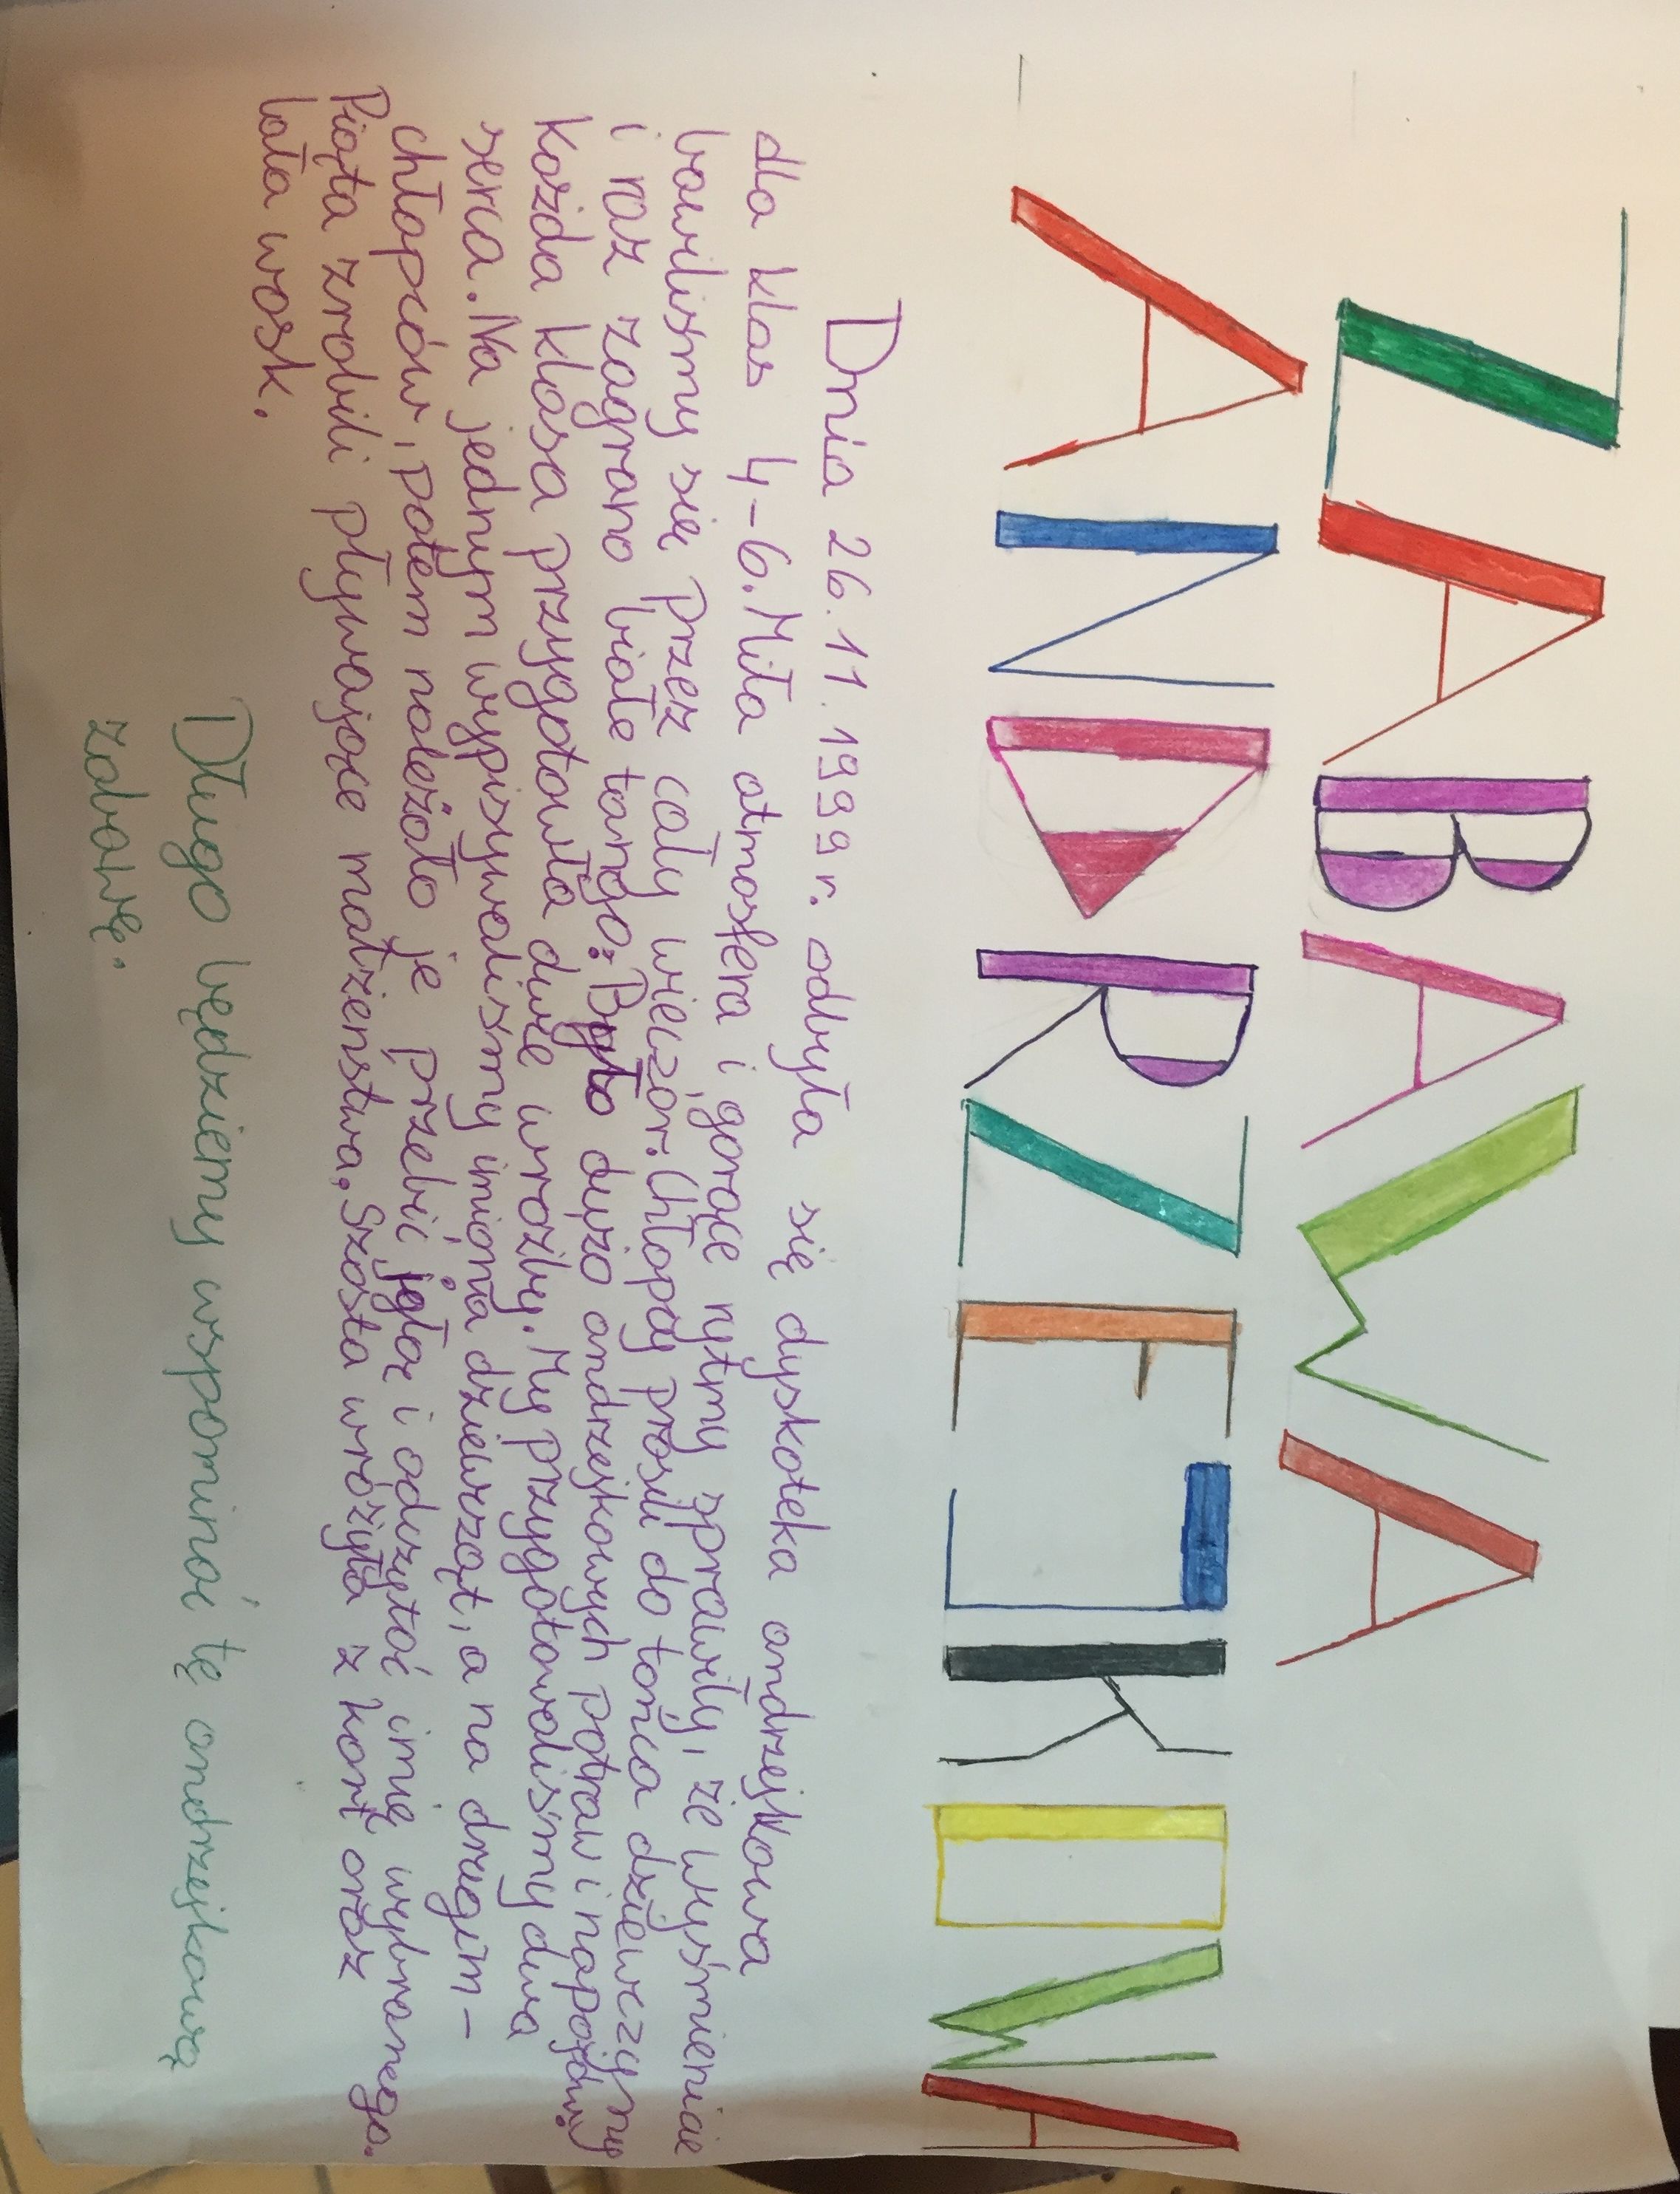 ZABAWA
ANDRZEJKOWA
Dnia 26.11.1999r. odbyła się dyskoteka andrzejkowa
dla klas 4-6. Miła atmosfera i gorące rytmy sprawiły, że wyśmienicie
bawiliśmy się przez cały wieczór. Chłopcy prosili do tańca dziewczyny
i raz zagrano białe tango. Było dużo andrzejkowych potraw i napojów.
Każda klasa przygotowła dwie wróżby. My przygotowaliśmy dwa
serca. Na jednym wypisywaliśmy imiona dziewcząt, a na drugim -
chłopców, potem należało je przebić igłą i odczytać imię wybranego.
Piąta zrobili pływające małżeństwa. Szósta wróżyła z kart oraz
lała wosk.
Długo będziemy wspominać tę andrzejkową
zabawę.